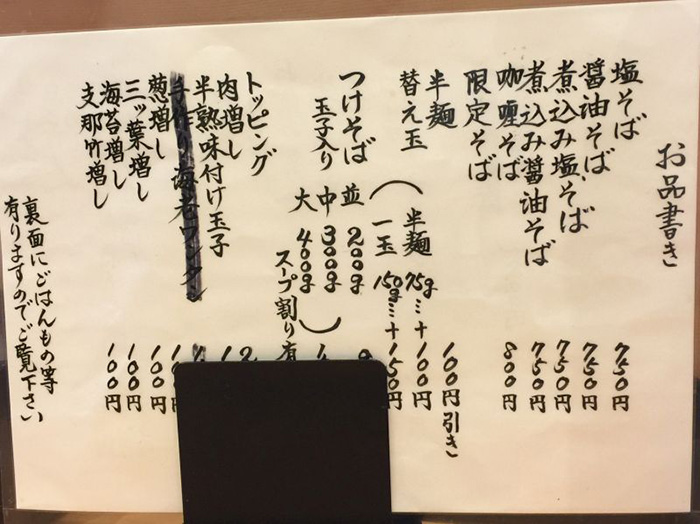 お品書き
塩そば 750円
醤油そば 750円
煮込み塩そば 750円
煮込み醤油そば 750円
咖喱そば 800円
限定そば
半麺 100円引き
替え玉 半麺 75g…+100円
一玉 150g…+150円
つけそば
玉子入り
並 200g
中 300g
大 400g
スープ割り有
トッピング
肉増し
半熟味付け玉子
手作り海老ワンタン
葱増し 100円
三ッ葉増し 100円
海苔増し 100円
支那竹増し 100円
裏面にごはんもの等
有りますのでご覧下さい